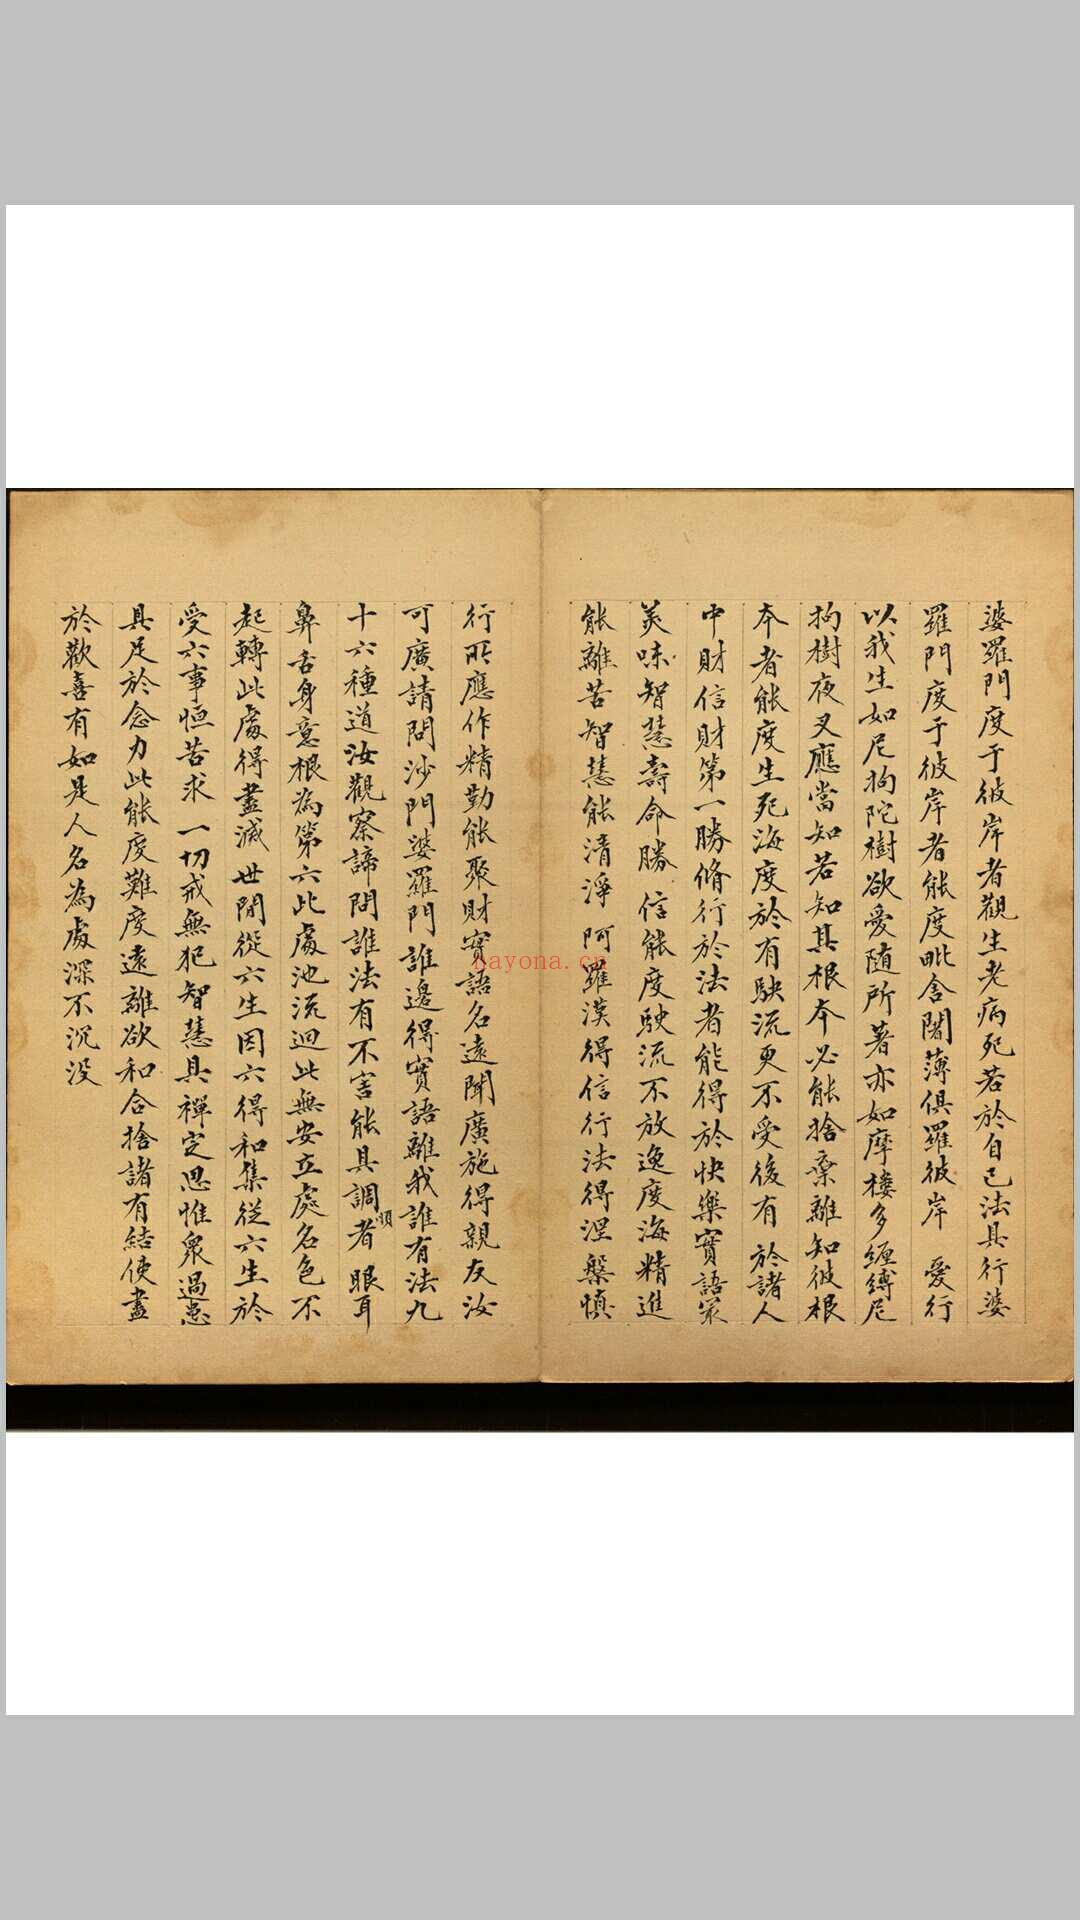 婆羅門度于彼岸者觀生老病死若於自己法具行婆
羅門度于彼岸者能度毗舍闍薄俱羅彼岸 愛行
以我生如尼拘陀樹欲愛随所著亦如摩樓多纏縛尼
拘樹夜叉應當知若知其根本必能捨棄離知彼根
本者能度生死海度於有駃流更不受後有 於諸人
中財信財第一勝脩行於法者能得於快樂實語冣
美味智慧壽命勝 信能度駛流不放逸度海精進
能離苦智慧能清淨 阿羅漢得信行法得涅槃慎
行所應作精勤能聚財實語名遠聞廣施得親友汝
可廣請問沙門婆羅門誰邊得實語離我誰有法九
十六種道汝觀察諦問誰法有不害能具調者 眼耳
順
鼻舌身意根為第六此處池流迴此無安立處名色不
起轉此處得盡滅 世間從六生因六得和集從六生於
受六事恒苦求 一切戒無犯智慧具禪定思惟衆過患
具足於念力此能度難度遠離欲和合捨諸有結使盡
於歡喜有如是人名為處深不沉没
nayona.cn